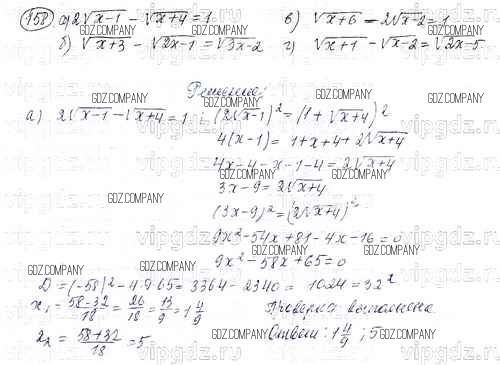 158) а) 2√x-1 - √x+4 = 1   в) √x+6 - 2√x-2 = 1
б) √x+3 - √2x-1 = √3x-2   г) √x+1 - √x-2 = √2x-5
Решение:
а) 2√x-1 - √x+4 = 1 ; (2√x-1)² = (1+√x+4)²
4(x-1) = 1+x+4+2√x+4
4x-4-x-1-4 = 2√x+4
3x-9 = 2√x+4
(3x-9)² = (2√x+4)²
9x²-54x+81-4x-16=0
9x²-58x+65=0
D = (-58)²-4·9·65 = 3364-2340 = 1024 = 32²
x₁ = 58-32/18 = 26/18 = 13/9 = 1 4/9   Проверка выполнена
x₂ = 58+32/18 = 5   Ответ: 1 4/9 ; 5
GDZ.COMPANY
vipgdz.com